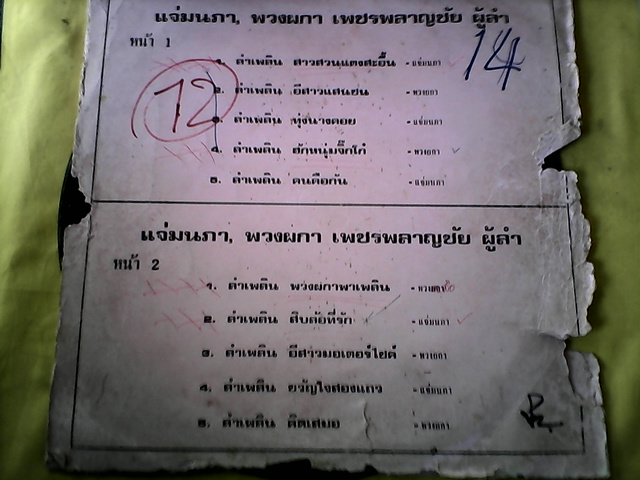 แจ่มนภา, พวงผกา เพชรพลาญชัย ผู้ลำ
หน้า 1
14
12
ลำเพลิน สาวสวนแตงสะอื้น - แจ่มนภา
2. ลำเพลิน อีสาวแสนซน - พวงผกา
3. ลำเพลิน ทุ่งนางคอย - แจ่มนภา
4. ลำเพลิน ฮักหนุ่มจิ๊กโก๋ - พวงผกา
5. ลำเพลิน คนคือกัน - แจ่มนภา
แจ่มนภา, พวงผกา เพชรพลาญชัย ผู้ลำ
หน้า 2
1. ลำเพลิน พวงผกาพาเพลิน - พวงผกา
2. ลำเพลิน สิบล้อที่รัก - แจ่มนภา
3. ลำเพลิน อีสาวมอเตอร์ไซค์ - พวงผกา
4. ลำเพลิน ขวัญใจสองแถว - แจ่มนภา
5. ลำเพลิน คิดเสมอ - พวงผกา